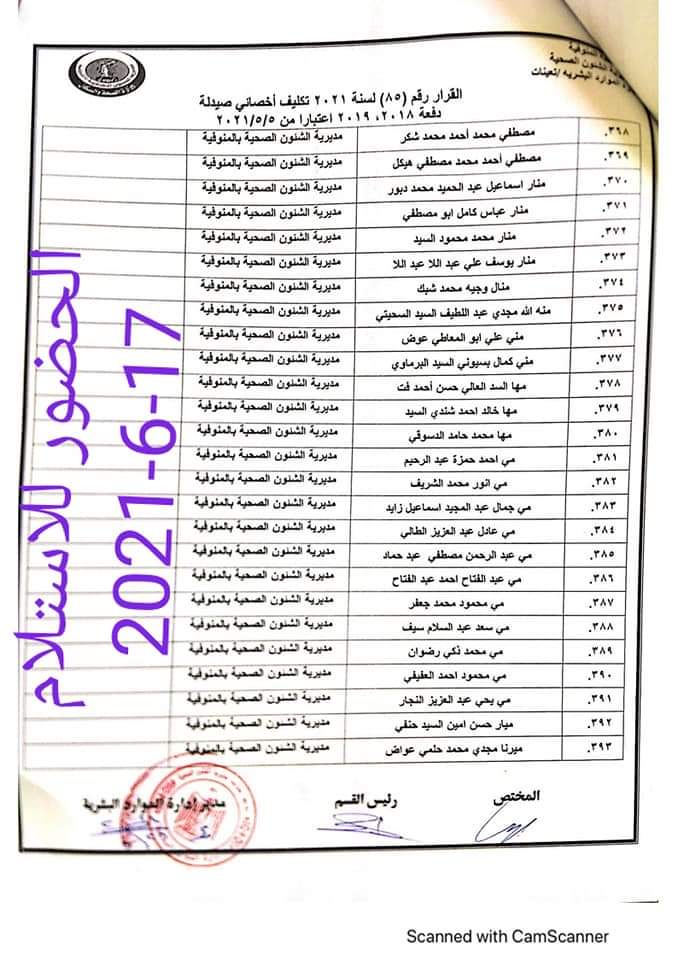 المنوفية
الشئون الصحية
الموارد البشريه /تعينات
القرار رقم (٨٥) لسنة ٢٠٢١ تكليف أخصائي صيدلة
دفعة ٢٠١٨، ٢٠١٩ اعتبارا من ٢٠٢١/٥/٥
٣٦٨. مصطفي محمد أحمد محمد شكر مديرية الشئون الصحية بالمنوفية
٣٦٩. مصطفي أحمد محمد مصطفي هيكل مديرية الشئون الصحية بالمنوفية
٣٧٠. منار اسماعيل عبد الحميد محمد دبور مديرية الشئون الصحية بالمنوفية
٣٧١. منار عباس كامل ابو مصطفي مديرية الشئون الصحية بالمنوفية
٣٧٢. منار محمد محمود السيد مديرية الشئون الصحية بالمنوفية
٣٧٣. منار يوسف علي عبد اللا عبد اللا مديرية الشئون الصحية بالمنوفية
٣٧٤. منال وجيه محمد شبك مديرية الشئون الصحية بالمنوفية
٣٧٥. منه الله مجدي عبد اللطيف السيد السحيتي مديرية الشئون الصحية بالمنوفية
٣٧٦. مني علي ابو المعاطي عوض مديرية الشئون الصحية بالمنوفية
٣٧٧. مني كمال بسيوني السيد البرماوي مديرية الشئون الصحية بالمنوفية
٣٧٨. مها السد العالي حسن أحمد فت مديرية الشئون الصحية بالمنوفية
٣٧٩. مها خالد احمد شندي السيد مديرية الشئون الصحية بالمنوفية
٣٨٠. مها محمد حامد الدسوقي مديرية الشئون الصحية بالمنوفية
٣٨١. مي احمد حمزة عبد الرحيم مديرية الشئون الصحية بالمنوفية
٣٨٢. مي انور محمد الشريف مديرية الشئون الصحية بالمنوفية
٣٨٣. مي جمال عبد المجيد اسماعيل زايد مديرية الشئون الصحية بالمنوفية
٣٨٤. مي عادل عبد العزيز الطالي مديرية الشئون الصحية بالمنوفية
٣٨٥. مي عبد الرحمن مصطفي عبد حماد مديرية الشئون الصحية بالمنوفية
٣٨٦. مي عبد الفتاح احمد عبد الفتاح مديرية الشئون الصحية بالمنوفية
٣٨٧. مي محمود محمد جعفر مديرية الشئون الصحية بالمنوفية
٣٨٨. مي سعد عبد السلام سيف مديرية الشئون الصحية بالمنوفية
٣٨٩. مي محمد ذكي رضوان مديرية الشئون الصحية بالمنوفية
٣٩٠. مي محمود احمد العفيفي مديرية الشئون الصحية بالمنوفية
٣٩١. مي يحي عبد العزيز النجار مديرية الشئون الصحية بالمنوفية
٣٩٢. ميار حسن امين السيد حنفي مديرية الشئون الصحية بالمنوفية
٣٩٣. ميرنا مجدي محمد حلمي عواض مديرية الشئون الصحية بالمنوفية
الحضور للاستلام
2021-6-17
المختص رئيس القسم مدير إدارة الموارد البشرية
Scanned with CamScanner